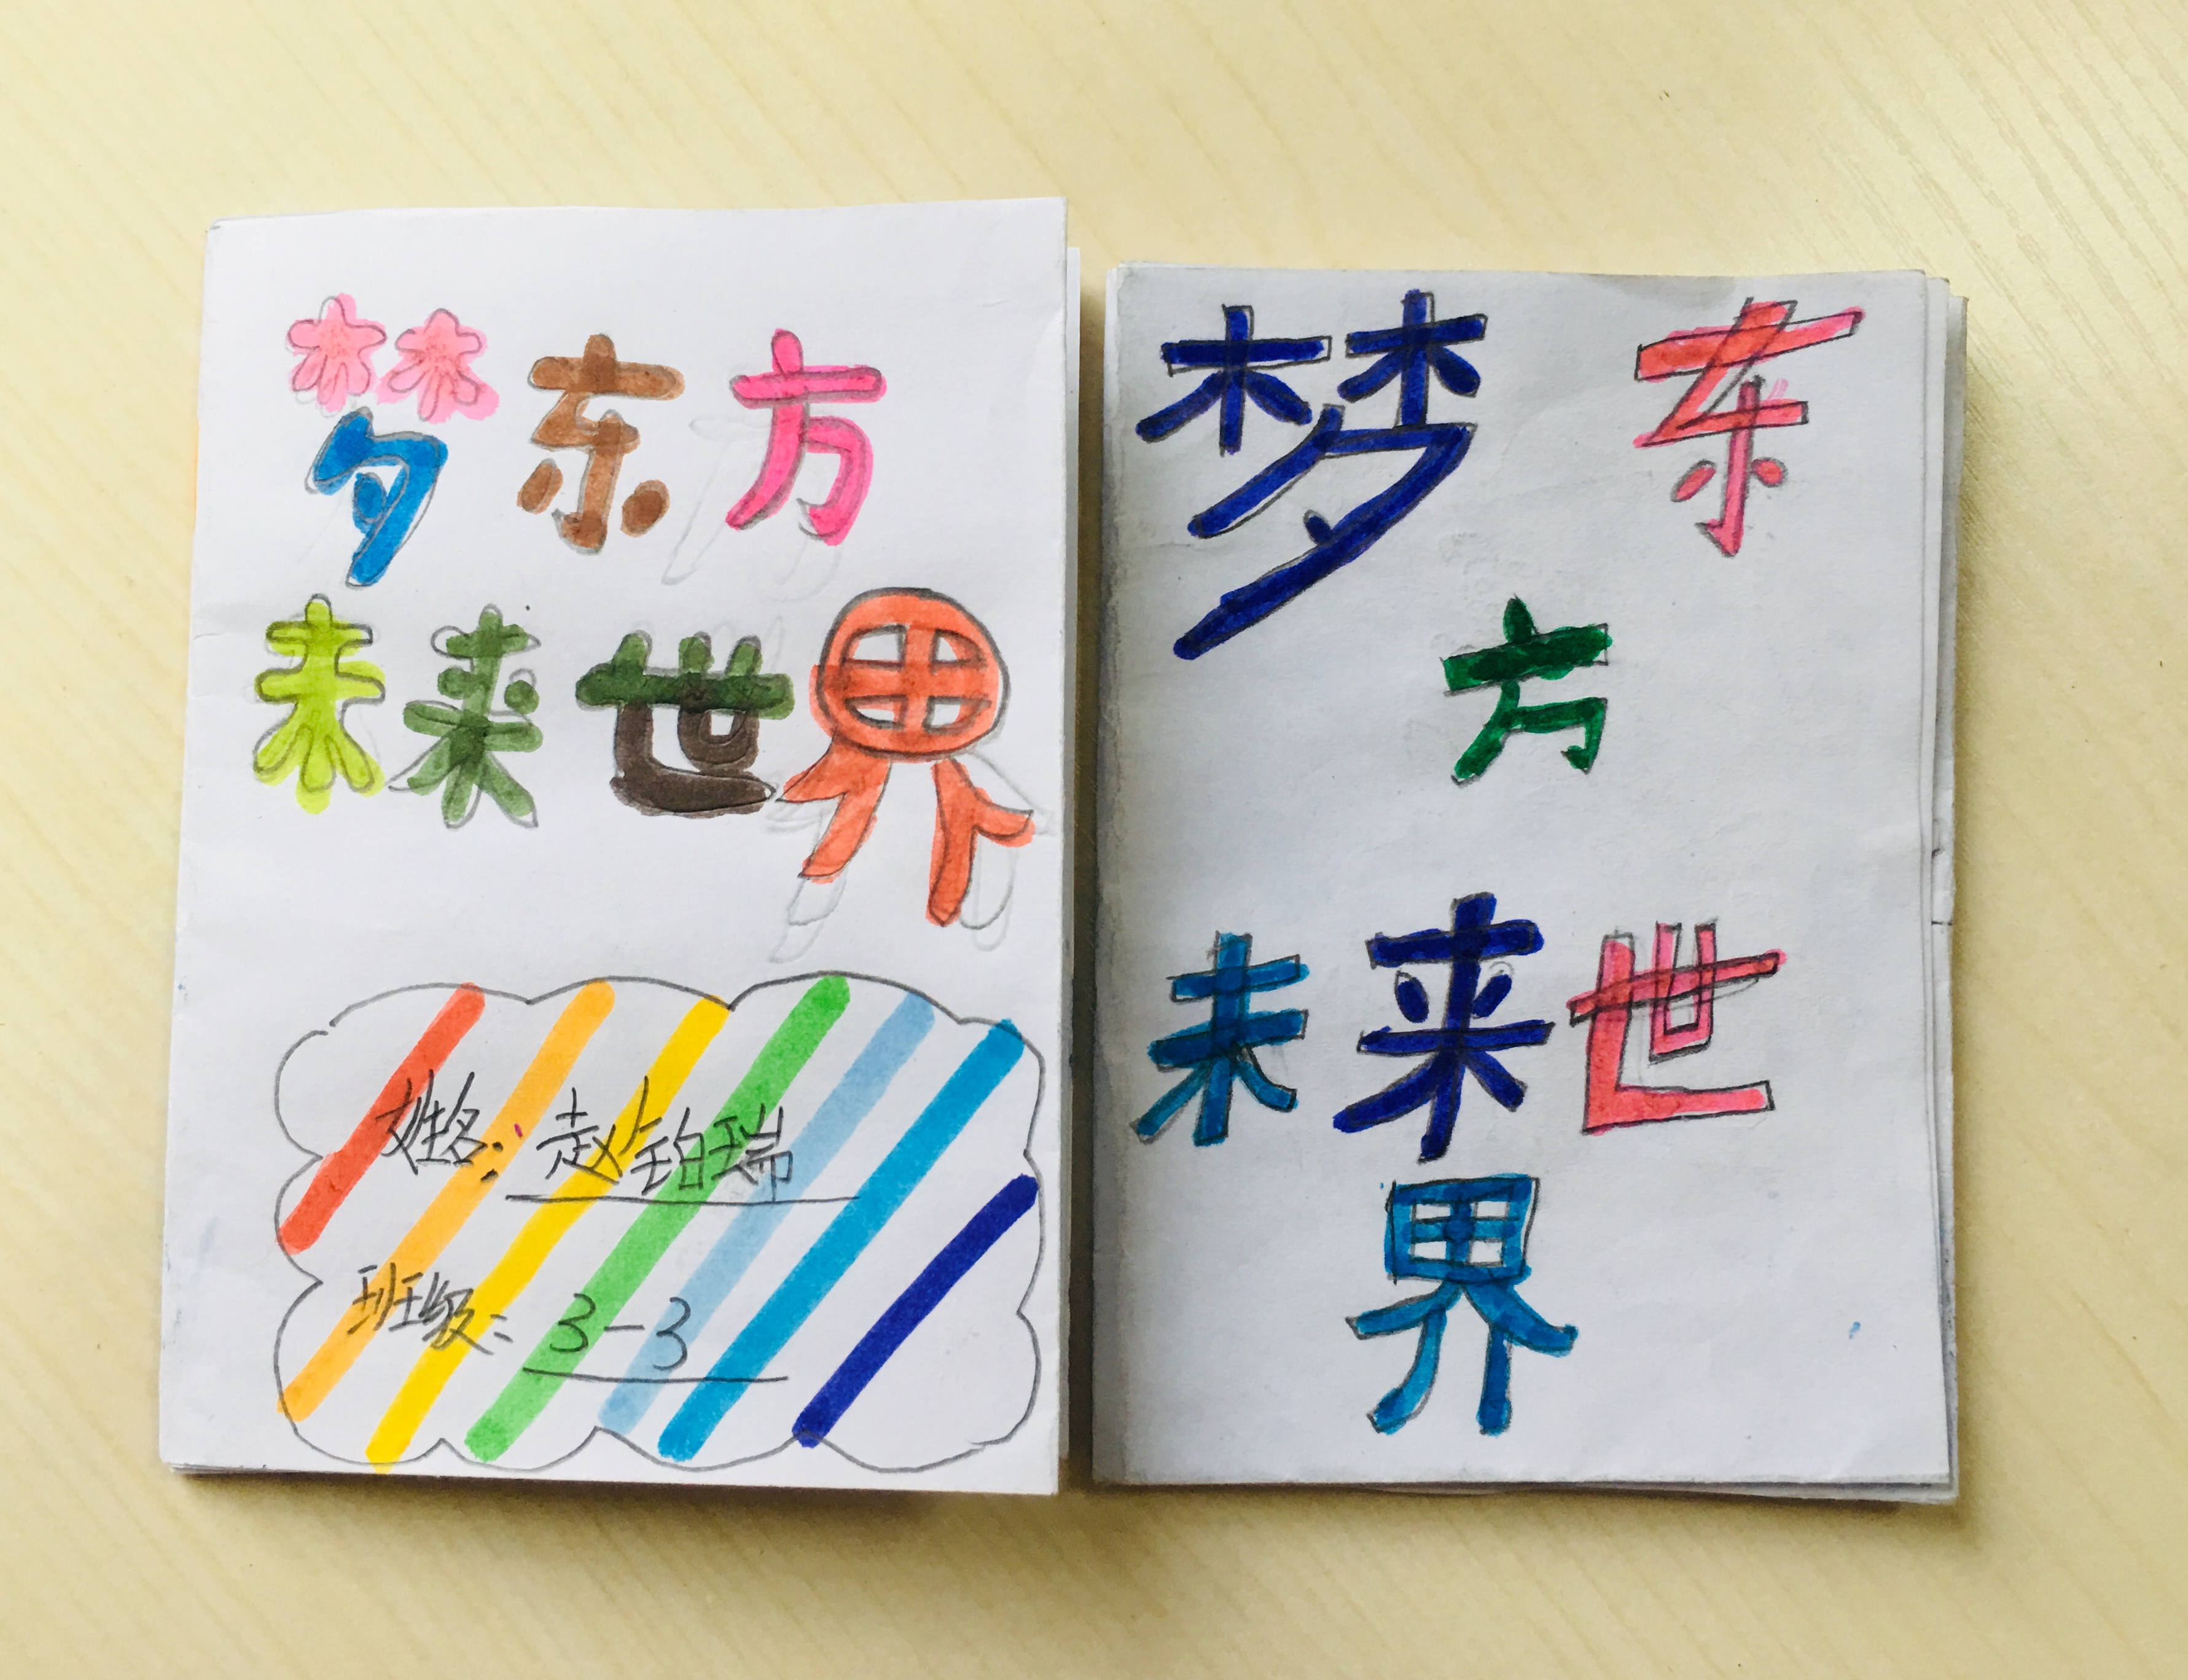 梦东方
未来世界
姓名：赵铂瑞
班级：3-3
梦东
方
未来世
界